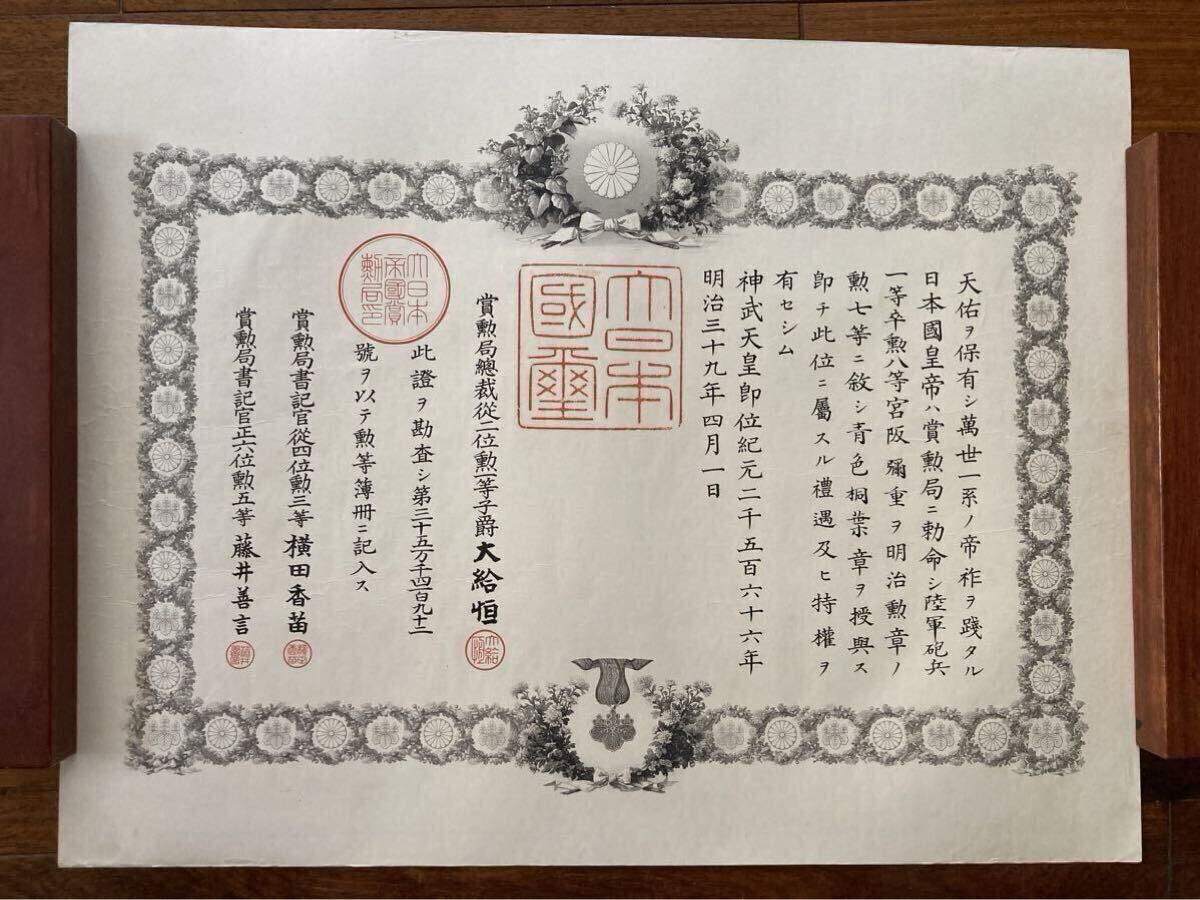 天佑ヲ保有シ萬世一系ノ帝祚ヲ踐タル
日本國皇帝ハ賞勲局ニ勅命シ陸軍砲兵
一等卒勲八等宮阪彌重ヲ明治勲章ノ
勲七等ニ敘シ青色桐葉章ヲ授與ス
即チ此位ニ屬スル禮遇及ヒ特權ヲ
有セシム
神武天皇即位紀元二千五百六十六年
明治三十九年四月一日
大日本
國璽
賞勲局總裁從二位勲一等子爵大給恒
大給恒
此證ヲ勘査シ第三十五万千四百九十二
號ヲ以テ勲等簿冊ニ記入ス
大日本
帝國賞
勲局印
賞勲局書記官從四位勲三等横田香苗
賞勲局書記官正六位勲五等藤井善言